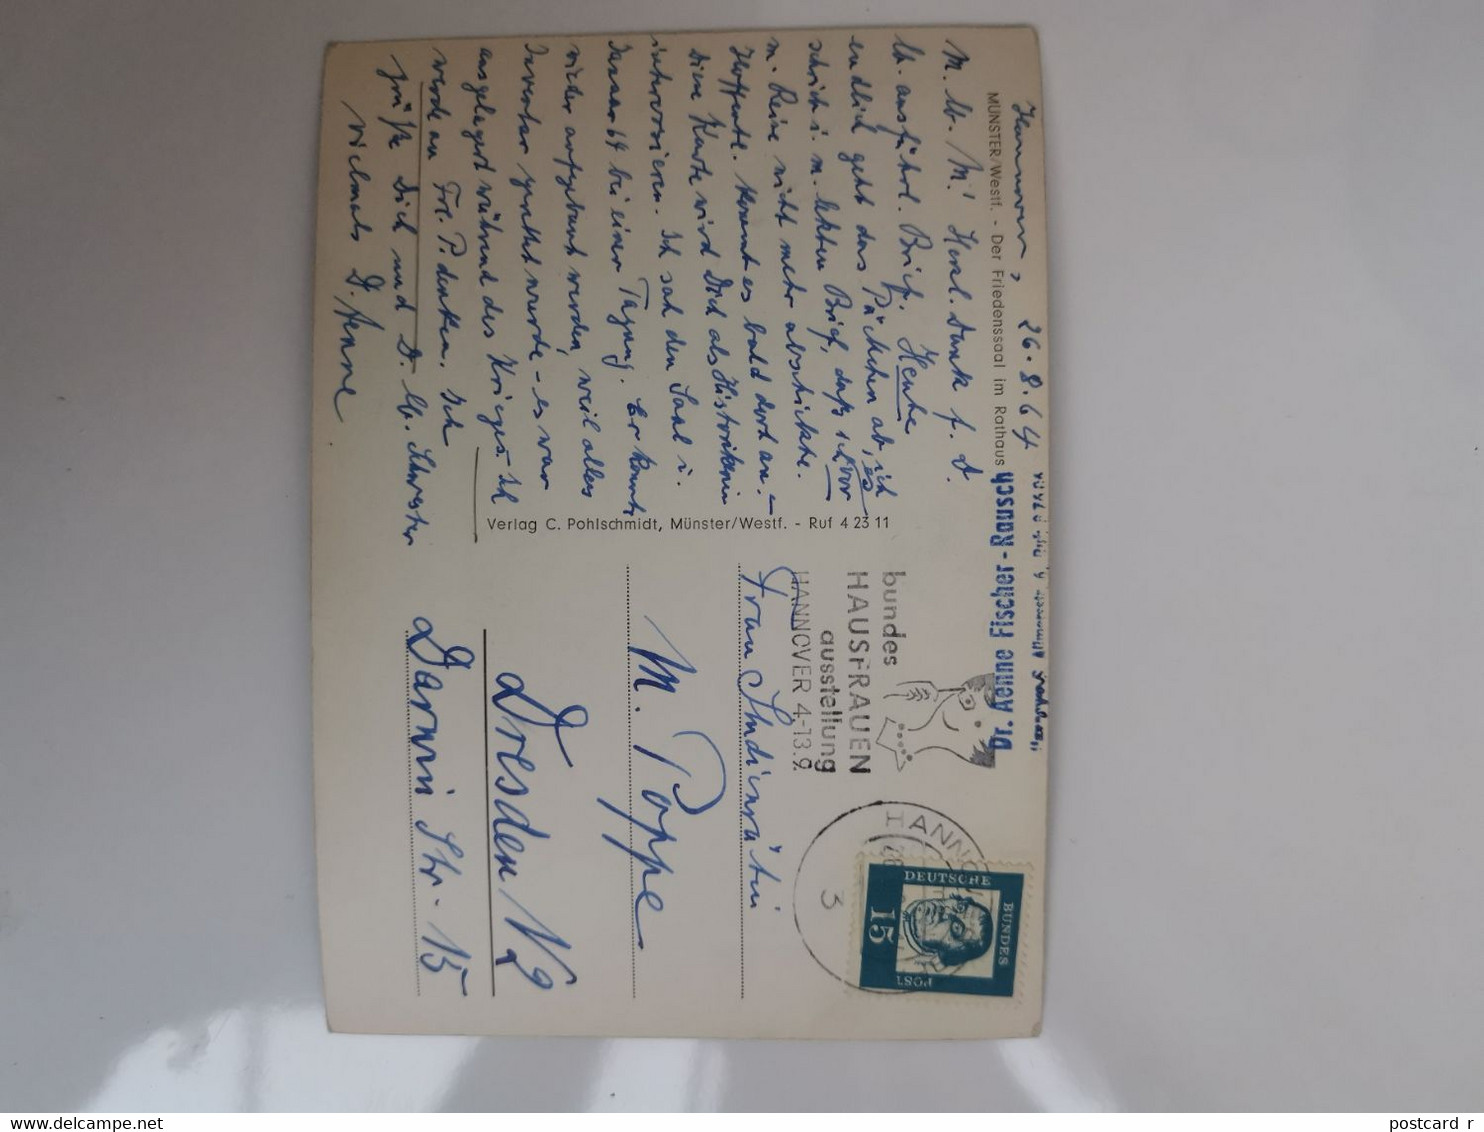 MÜNSTER/Westf. - Der Friedenssaal im Rathaus
Hannover, 26.8.64
M. lb. M! Herzl. Dank f. D.
lb. ausführl. Brief. Heute
endlich geht das Päckchen ab, ich
schrieb i. m. letzten Brief, daß ich es vor
m. Reise nicht mehr abschickte.
Hoffentl. kommt es bald dort an. –
Diese Karte wird Dich als Historikerin
interessieren. Ich sah den Saal i.
Januar 64 bei einer Tagung. Er konnte
wieder aufgebaut werden, weil alles
Inventar gerettet wurde – es war
ausgelagert während des Krieges. Ich
werde an Frl. P. denken. Ich
grüße Dich und D. lb. Schwester
vielmals D. Aenne
Dr. Aenne Fischer-Rausch
Verlag C. Pohlschmidt, Münster/Westf. - Ruf 4 23 11
bundes
HAUSFRAUEN
ausstellung
HANNOVER 4-13.9.
HANNOVER
3
DEUTSCHE
BUNDES
POST
15
Frau Studienrätin
M. Poppe
Dresden N2
Darwin Str. 15
postcard r
www.delcampe.net